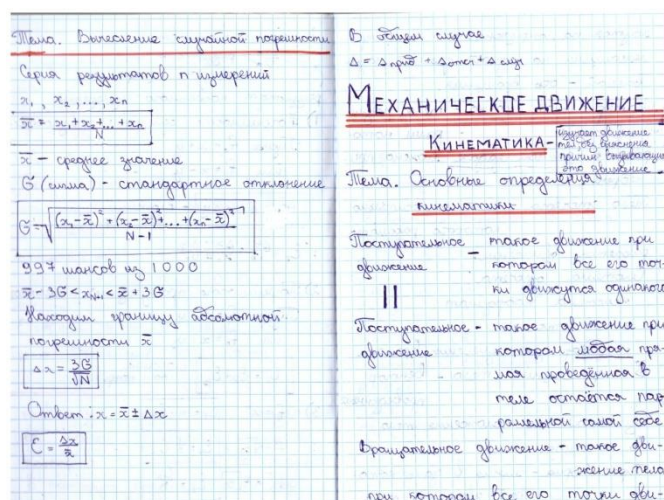 Тема. Вычесление случайной погрешности
Серия результатов n измерений
x₁, x₂, ..., xₙ
x̄ = (x₁+x₂+...+xₙ)/N
x̄ – среднее значение
Ϭ (сигма) - стандартное отклонение
Ϭ = √(((x₁-x̄)² + (x₂-x̄)² + ... + (xₙ-x̄)²)/(N-1))
997 шансов из 1000
x̄ - 3Ϭ < x_N+1 < x̄ + 3Ϭ
Находим границу абсолютной
погрешности x̄
Δx = 3Ϭ/√N
Ответ: x = x̄ ± Δx
Ɛ = Δx/x̄
В общем случае
Δ = Δ приб + Δ отсч + Δ случ
МЕХАНИЧЕСКОЕ ДВИЖЕНИЕ
КИНЕМАТИКА -
изучает движение
тел без
причин
это движение
Тема. Основные определения
кинематики
Поступательное – такое движение при
движение котором все его точ-
ки движутся одинаково
||
Поступательное - такое движение при
движение котором любая пря-
мая проведённая в
теле остаётся пар
раллельной самой себе
Вращательное движение - такое дви-
жение тела
при котором все его точки дви-